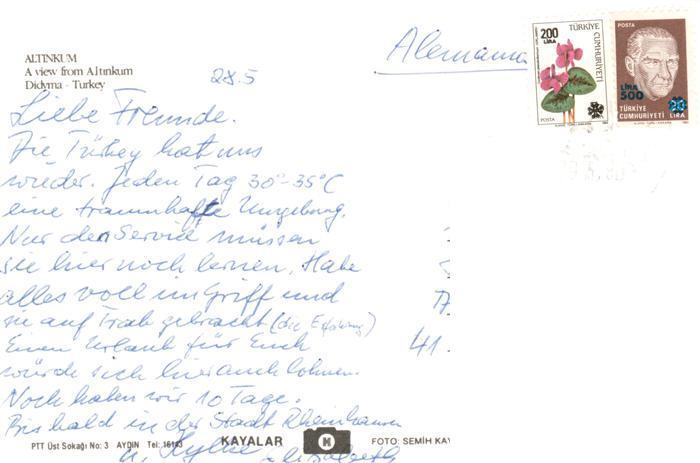 ALTINKUM
A view from Altınkum
Didyma - Turkey
28.5
Alemania
200
LIRA
TÜRKİYE CUMHURİYETİ
POSTA
POSTA
LİRA
500
20
TÜRKİYE
CUMHURİYETİ LİRA
Liebe Freunde.
Die Türkey hat uns
wieder. Jeden Tag 30°-35°C
eine traumhafte Umgebung.
Nur den Service müssen
sie hier noch lernen. Habe
alles voll im Griff und
sie auf Trab gebracht (die Erfahrung)
Einen Urlaub für Euch
würde sich hier auch lohnen.
Noch haben wir 10 Tage.
Bis bald in der Stadt Rheinhausen
41
Elisabeth
PTT Üst Sokağı No: 3 AYDIN Tel: 16143
KAYALAR
FOTO: SEMİH KAY